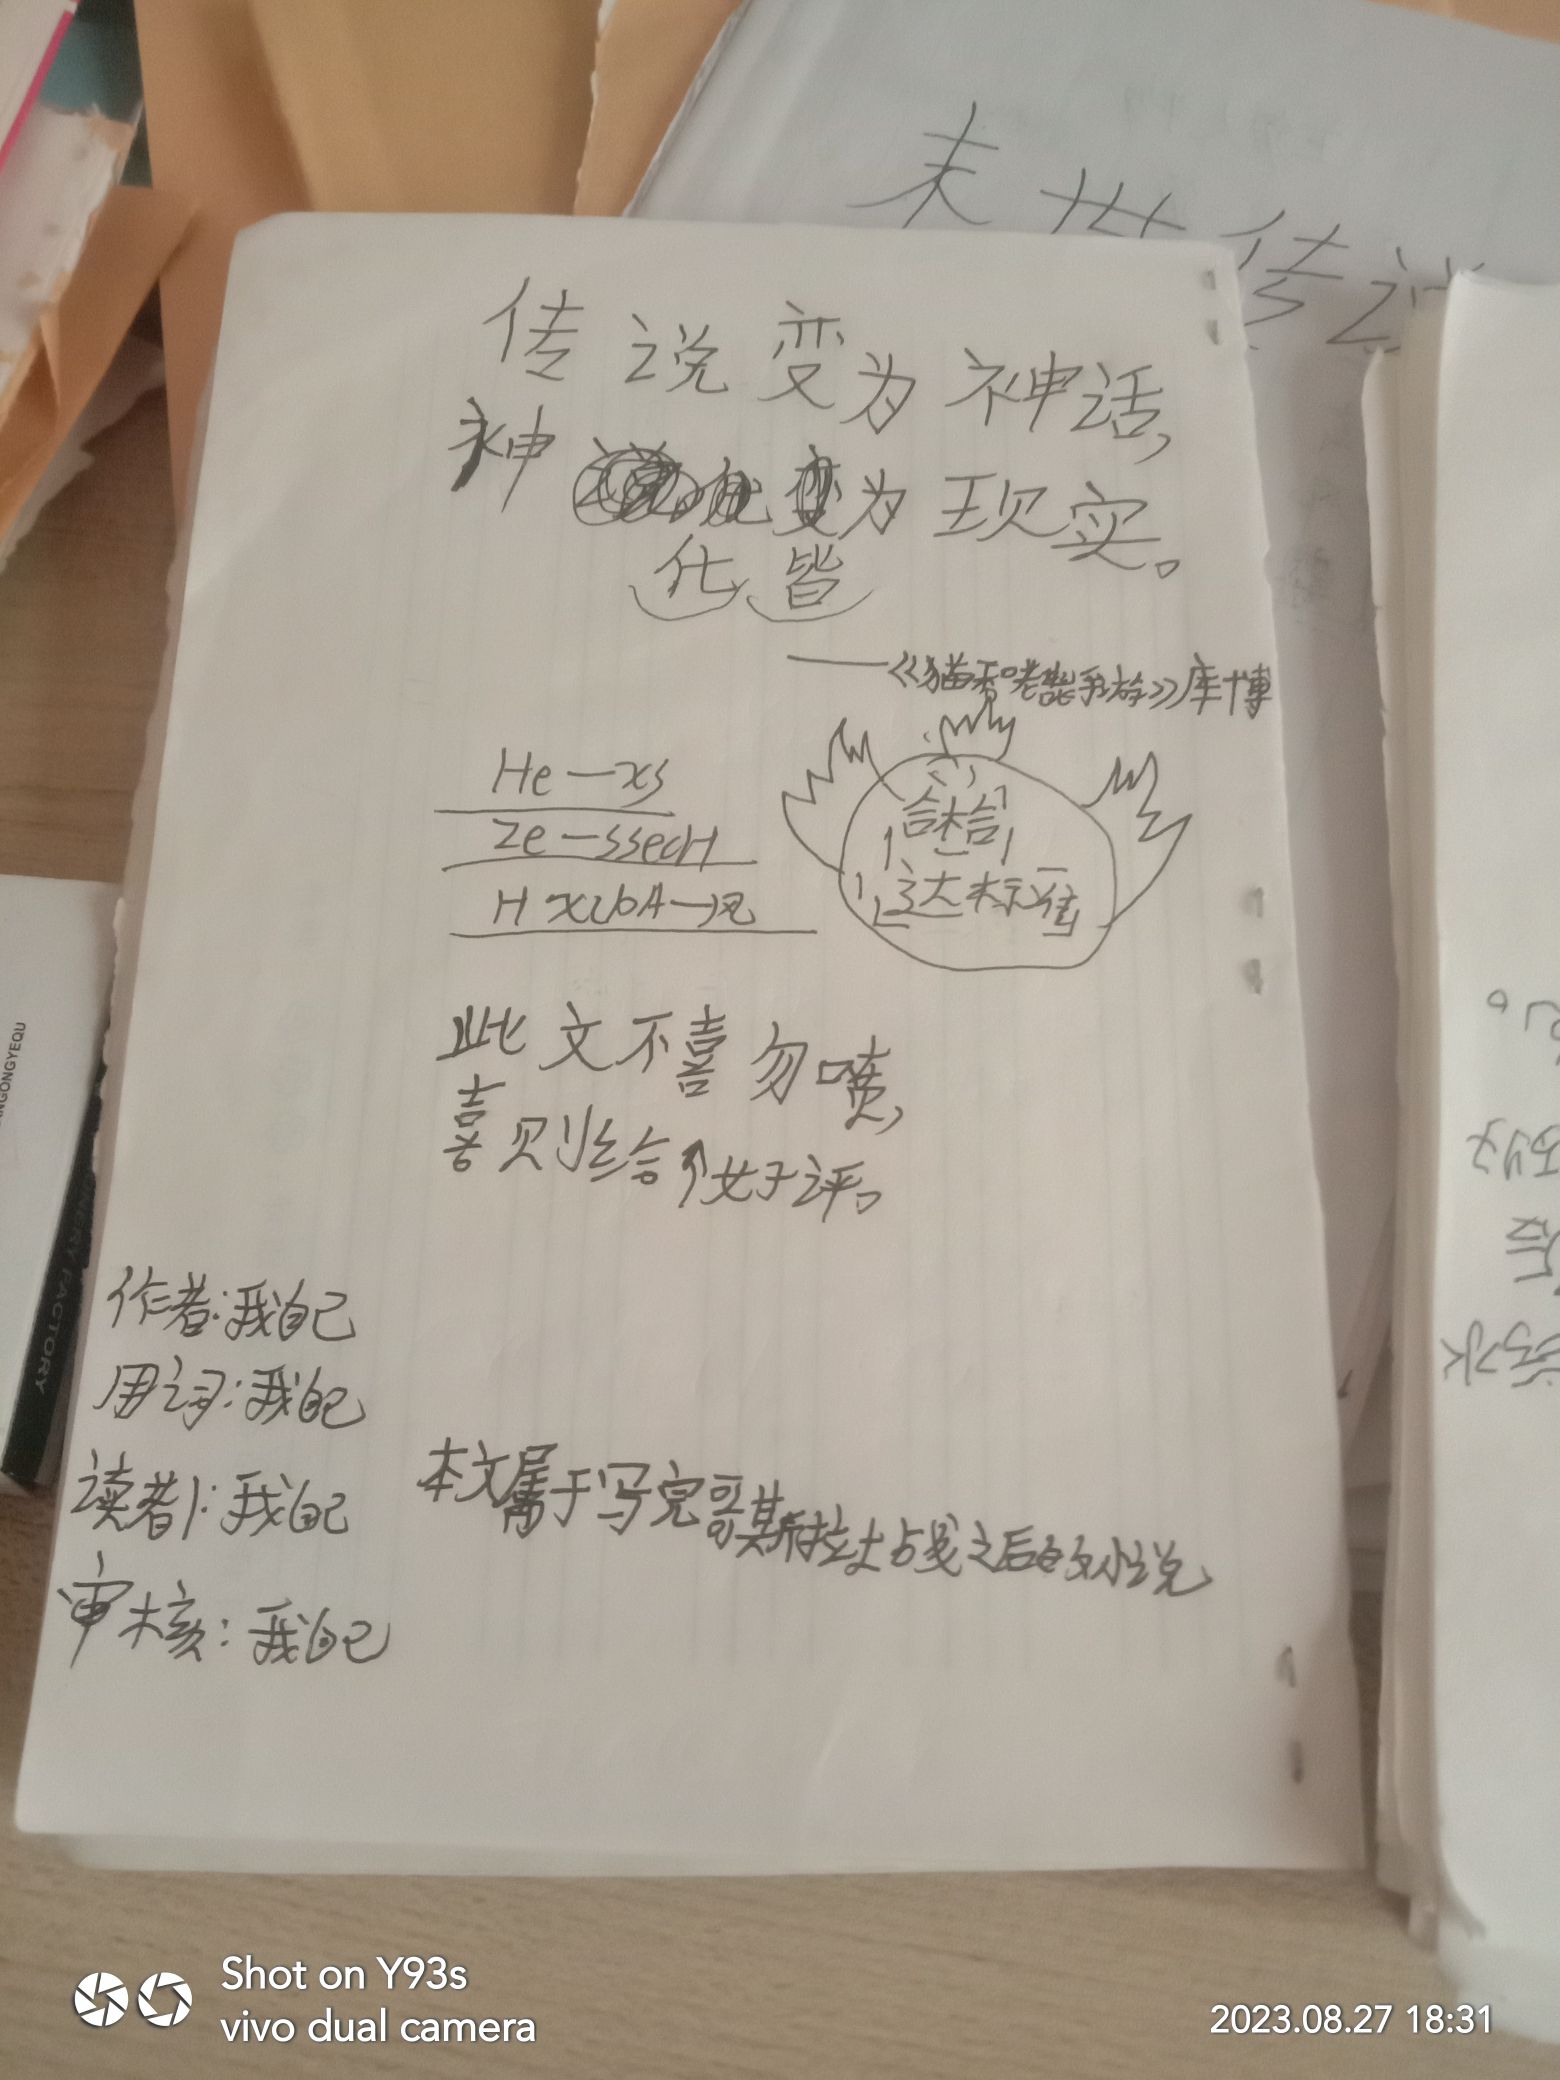 末世传说
传说变为神话,
神为现实。
化皆
——《猫和老鼠手游》库博
He—xs
Ze—ssecH
合格
达标准
此文不喜勿喷,
喜则给个好评。
作者:我自己
用词:我自己
读者1:我自己
审核:我自己
本文属于写完哥斯拉大战之后的小说
NGONGYEQU
INERY FACTORY
Shot on Y93s
vivo dual camera
2023.08.27 18:31